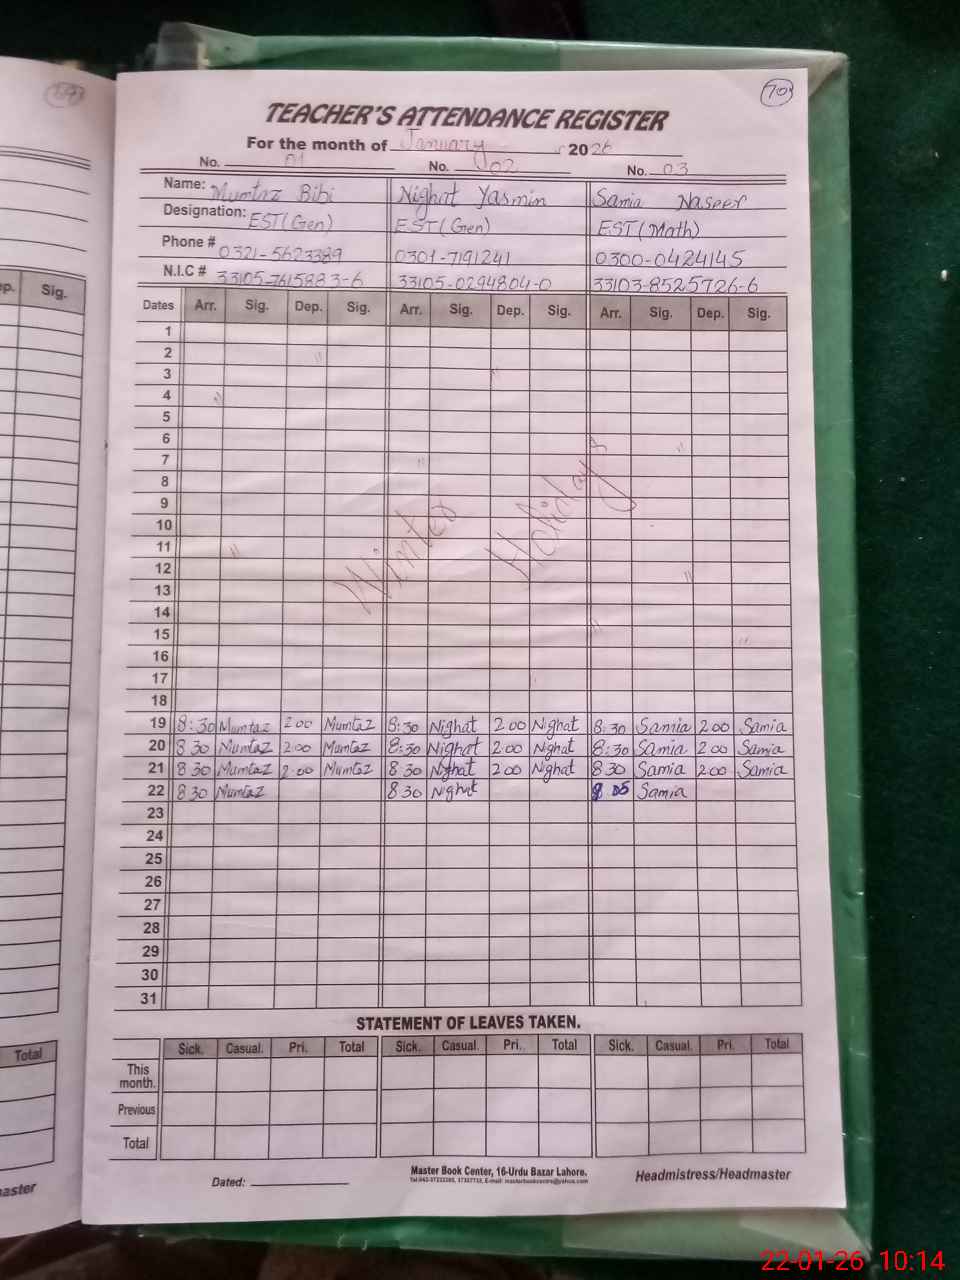 70
TEACHER'S ATTENDANCE REGISTER
For the month of January 2026
No. 01 No. 02 No. 03
Name: Mumtaz Bibi Nighat Yasmin Samia Naseer
Designation: EST(Gen) EST(Gen) EST(Math)
Phone # 0321-5623389 0301-7191241 0300-0424145
N.I.C # 33105-7615883-6 33105-0294804-0 33103-8525726-6
Dates Arr. Sig. Dep. Sig. Arr. Sig. Dep. Sig. Arr. Sig. Dep. Sig.
ep. Sig.
1
2 "
3 "
4 "
5
6 "
7 "
8
9
10
11 "
12 "
13
14
15 " "
16
17
18
Winter Holidays
19 8:30 Mumtaz 2 00 Mumtaz 8:30 Nighat 2 00 Nighat 8:30 Samia 2 00 Samia
20 8 30 Mumtaz 2:00 Mumtaz 8:30 Nighat 2:00 Nighat 8:30 Samia 2 00 Samia
21 8 30 Mumtaz 2:00 Mumtaz 8 30 Nighat 2 00 Nighat 8 30 Samia 2 00 Samia
22 8 30 Mumtaz 8 30 Nighat 8 05 Samia
23
24
25
26
27
28
29
30
31
STATEMENT OF LEAVES TAKEN.
Sick. Casual. Pri. Total Sick. Casual. Pri. Total Sick. Casual. Pri. Total
Total
This
month.
Previous
Total
Dated:
Master Book Center, 16-Urdu Bazar Lahore.
Headmistress/Headmaster
master
22-01-26 10:14